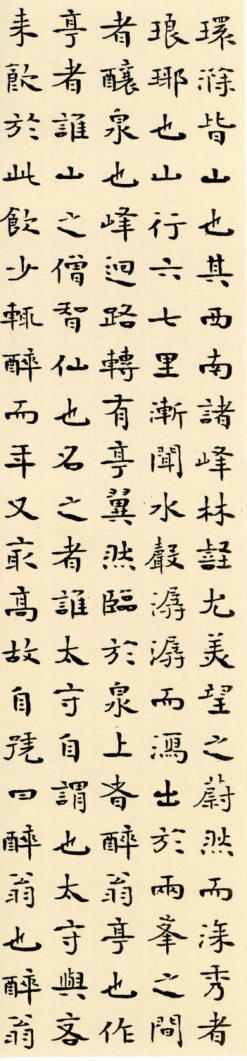 環滁皆山也其西南諸峰林壑尤美望之蔚然而深秀者
琅琊也山行六七里漸聞水聲潺潺而瀉出於兩峯之間
者釀泉也峰迴路轉有亭翼然臨於泉上者醉翁亭也作
亭者誰山之僧智仙也名之者誰太守自謂也太守與客
来飲於此飲少輒醉而年又最高故自號曰醉翁也醉翁